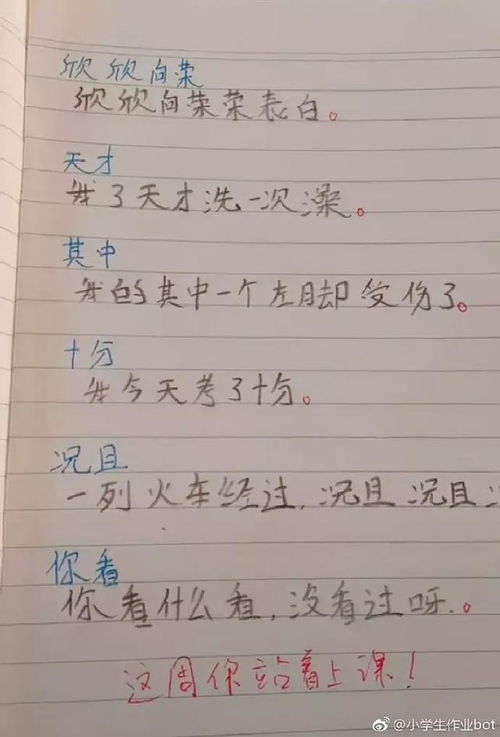 欣欣向荣
欣欣向荣荣表白。
天才
我3天才洗一次澡。
其中
我的其中一个左脚却受伤了。
十分
我今天考了十分。
况且
一列火车经过,况且况且
你看
你看什么看,没看过呀。
这周你站着上课!
@小学生作业bot